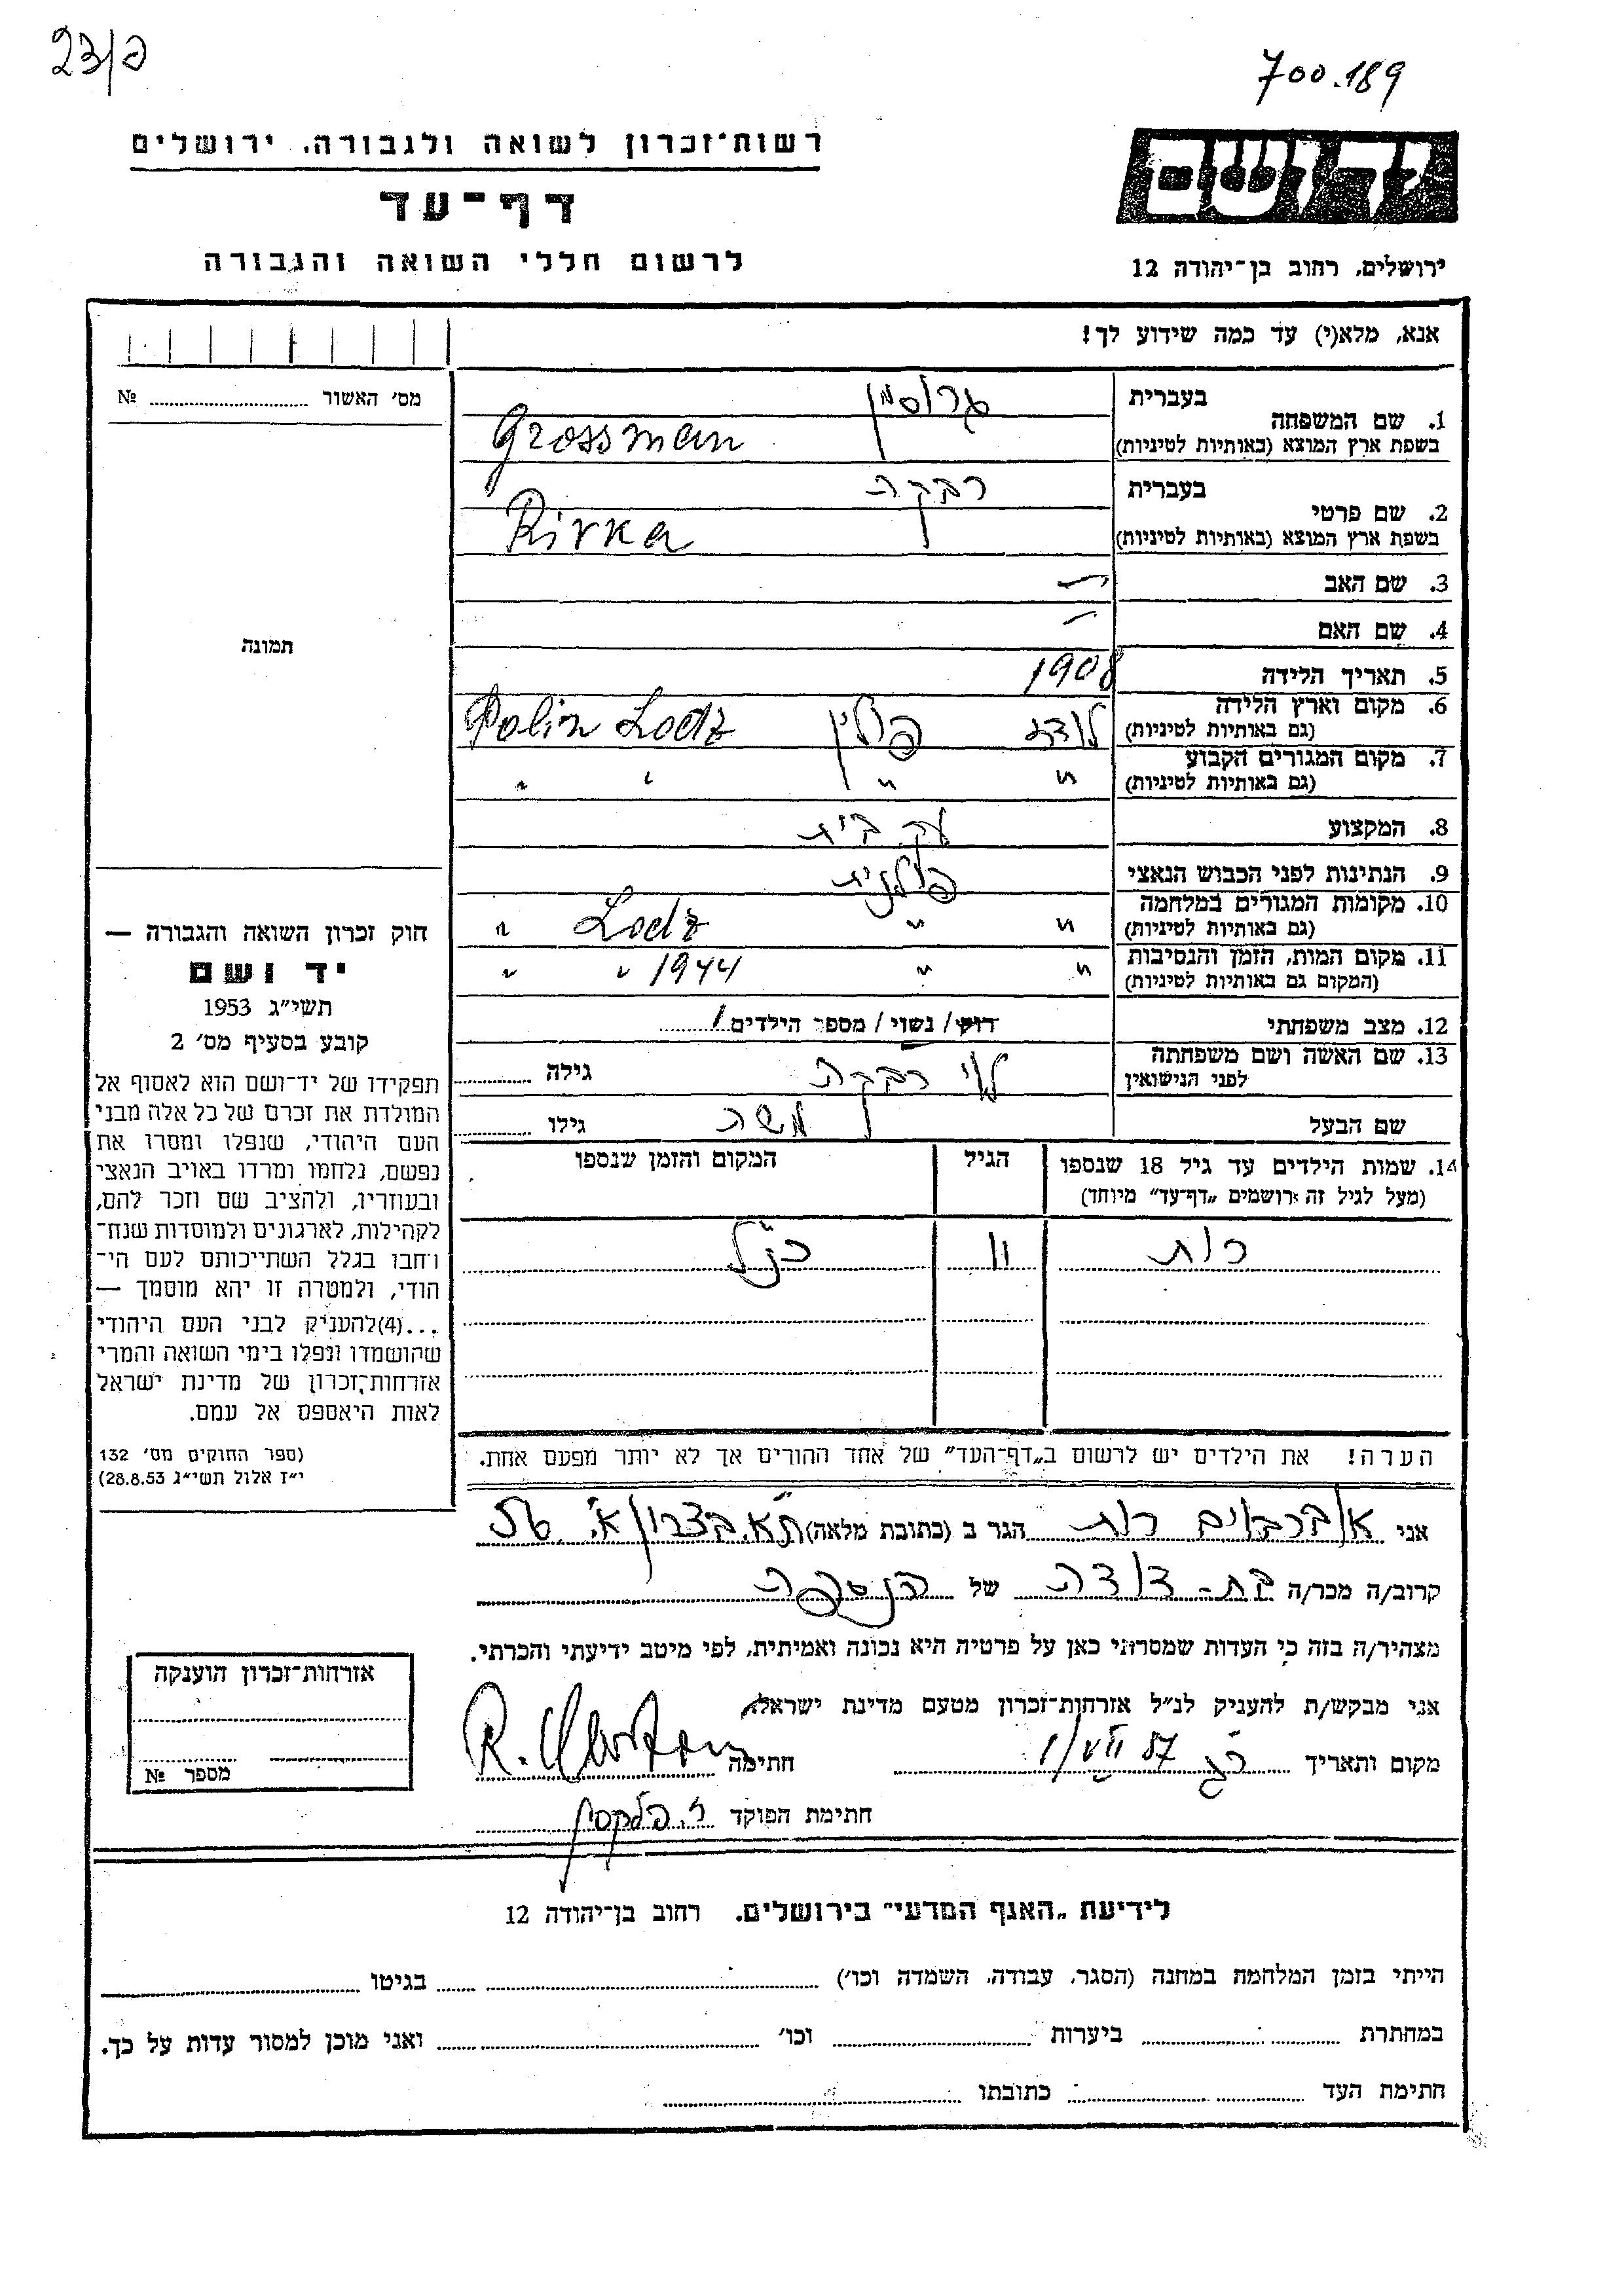 23/כ
700.189
רשות־זכרון לשואה ולגבורה. ירושלים
דף־עד
לרשום חללי השואה והגבורה
יד ושם
ירושלים, רחוב בן־יהודה 12
אנא, מלא(י) עד כמה שידוע לך!
מס׳ האשור № 
תמונה
בעברית גרוסמן
1. שם המשפחה
בשפת ארץ המוצא (באותיות לטיניות) Grossman
בעברית רבקה
2. שם פרטי
בשפת ארץ המוצא (באותיות לטיניות) Rivka
3. שם האב –
4. שם האם –
5. תאריך הלידה 1908
6. מקום וארץ הלידה
(גם באותיות לטיניות) לודז פולין Polin Lodz
7. מקום המגורים הקבוע
(גם באותיות לטיניות) " " " "
8. המקצוע עק. בית
9. הנתינות לפני הכבוש הנאצי פולנית
10. מקומות המגורים במלחמה
(גם באותיות לטיניות) " " Lodz "
11. מקום המות, הזמן והנסיבות
(המקום גם באותיות לטיניות) " " 1944 " "
12. מצב משפחתי רווק / נשוי / מספר הילדים 1
13. שם האשה ושם משפחתה
לפני הנישואין לוי רבקה גילה
שם הבעל משה גילו
14. שמות הילדים עד גיל 18 שנספו
(מעל לגיל זה רושמים „דף־עד” מיוחד)
הגיל
המקום והזמן שנספו
רות 11 כנ"ל
הערה! את הילדים יש לרשום ב„דף־העד” של אחד ההורים אך לא יותר מפעם אחת.
חוק זכרון השואה והגבורה —
יד ושם
תשי״ג 1953
קובע בסעיף מס׳ 2
תפקידו של יד־ושם הוא לאסוף אל
המולדת את זכרם של כל אלה מבני
העם היהודי, שנפלו ומסרו את
נפשם, נלחמו ומרדו באויב הנאצי
ובעוזריו, ולהציב שם וזכר להם,
לקהילות, לארגונים ולמוסדות שנח־
רחבו בגלל השתייכותם לעם הי־
הודי, ולמטרה זו יהא מוסמך —
...(4)להעניק לבני העם היהודי
שהושמדו ונפלו בימי השואה והמרי
אזרחות־זכרון של מדינת ישראל
לאות היאספם אל עמם.
(ספר החוקים מס׳ 132
י״ז אלול תשי״ג 28.8.53)
אני רות הגר ב (כתובת מלאה) ת"א. בצרון א'. 56
קרוב/ה מכר/ה בת-דודה של הנספה
מצהיר/ה בזה כי העדות שמסרתי כאן על פרטיה היא נכונה ואמיתית, לפי מיטב ידיעתי והכרתי.
אני מבקש/ת להעניק לנ״ל אזרחות־זכרון מטעם מדינת ישראל.
מקום ותאריך 1/VII 57 חתימה R.
חתימת הפוקד
אזרחות־זכרון הוענקה
מספר №
לידיעת „האגף המדעי” בירושלים. רחוב בן־יהודה 12
הייתי בזמן המלחמת במחנה (הסגר, עבודה, השמדה וכו׳) בגיטו
במחתרת ביערות וכו׳ ואני מוכן למסור עדות על כך.
חתימת העד כתובתו